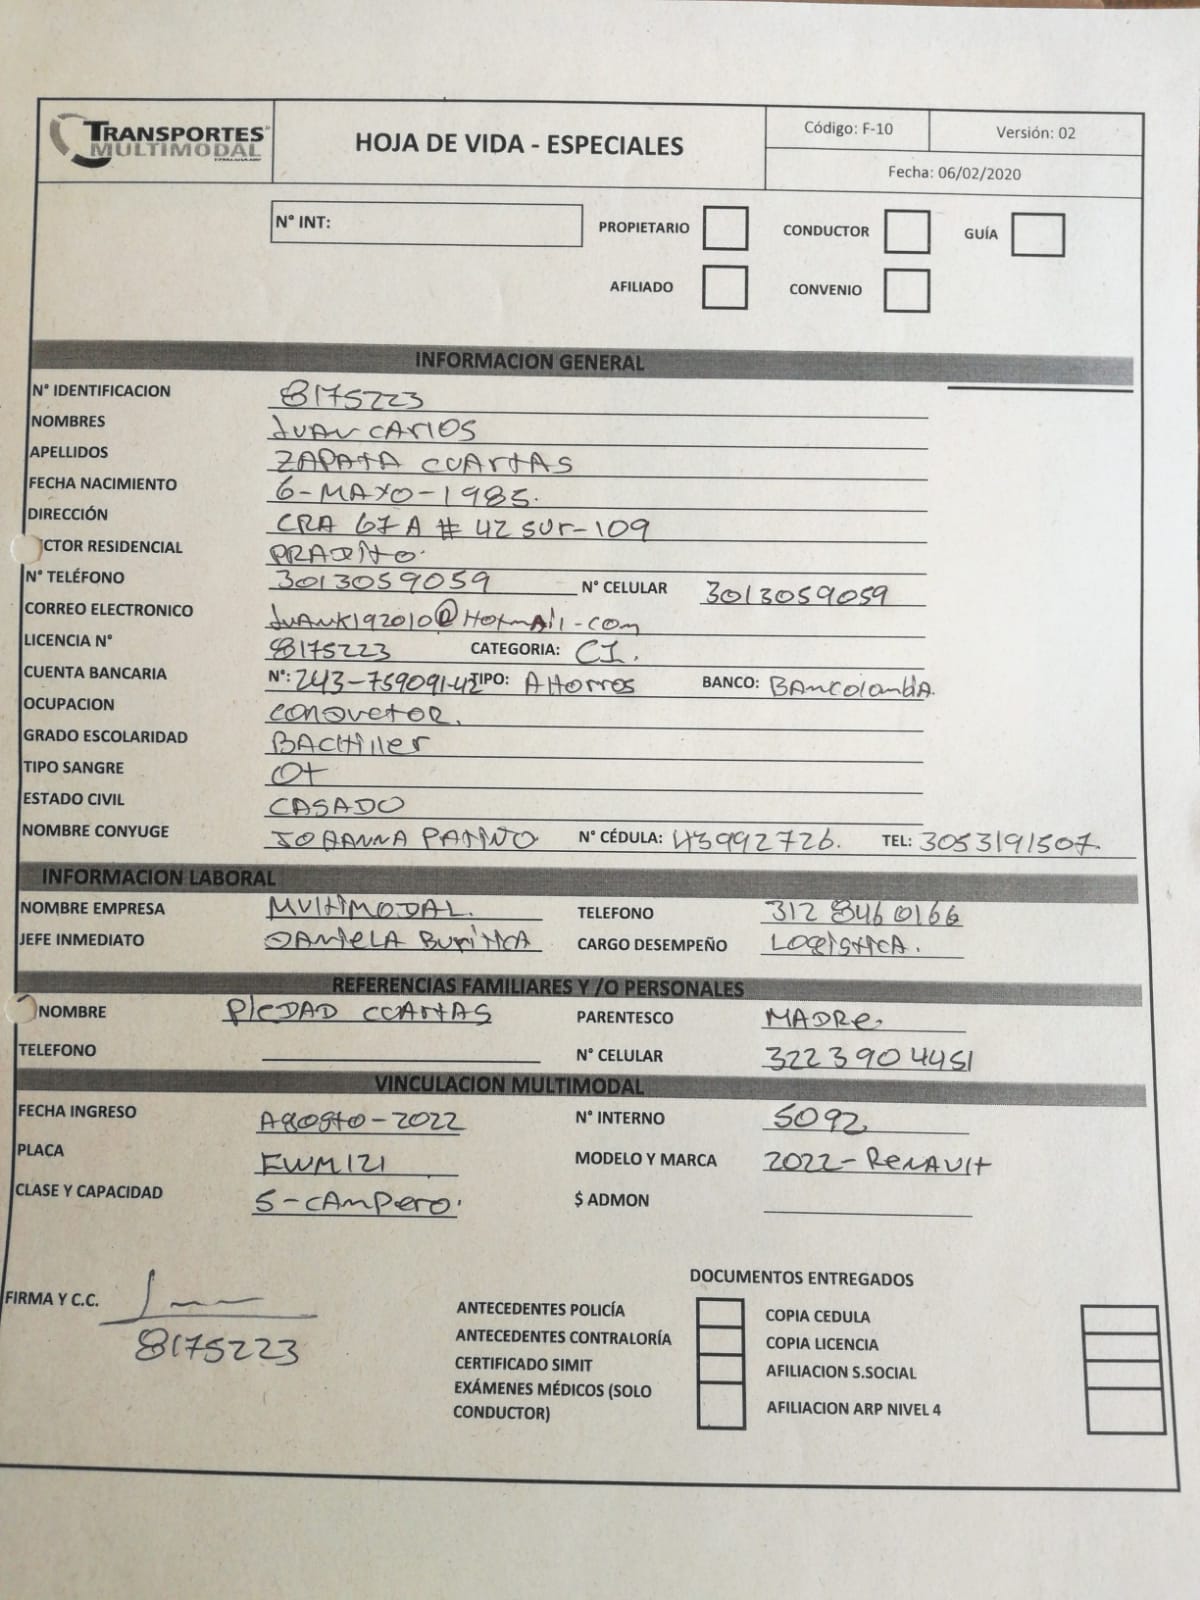 TRANSPORTES
MULTIMODAL
HOJA DE VIDA - ESPECIALES
Código: F-10
Versión: 02
Fecha: 06/02/2020
N° INT:
PROPIETARIO
CONDUCTOR
GUÍA
AFILIADO
CONVENIO
INFORMACION GENERAL
N° IDENTIFICACION 8175223
NOMBRES JUAN CARLOS
APELLIDOS ZAPATA CUARTAS
FECHA NACIMIENTO 6-MAYO-1985.
DIRECCIÓN CRA 67 A # 42 SUR-109
CTOR RESIDENCIAL PRADITO.
N° TELÉFONO 3013059059 N° CELULAR 3013059059
CORREO ELECTRONICO JUANK192010@Hotmail.com
LICENCIA N° 8175223 CATEGORIA: C1.
CUENTA BANCARIA N°: 243-759091-42 TIPO: AHORROS BANCO: BANCOLOMBIA.
OCUPACION CONDUCTOR.
GRADO ESCOLARIDAD BACHILLER
TIPO SANGRE O+
ESTADO CIVIL CASADO
NOMBRE CONYUGE JOHANNA PATIÑO N° CÉDULA: 43992726. TEL: 3053191507.
INFORMACION LABORAL
NOMBRE EMPRESA MULTIMODAL. TELEFONO 312 846 0166
JEFE INMEDIATO DANIELA BURITICA CARGO DESEMPEÑO LOGISTICA.
REFERENCIAS FAMILIARES Y /O PERSONALES
NOMBRE PIEDAD CUARTAS PARENTESCO MADRE.
TELEFONO N° CELULAR 322 390 4451
VINCULACION MULTIMODAL
FECHA INGRESO AGOSTO-2022 N° INTERNO 5092
PLACA EWM121 MODELO Y MARCA 2022-RENAULT
CLASE Y CAPACIDAD 5-CAMPERO. $ ADMON
DOCUMENTOS ENTREGADOS
FIRMA Y C.C.
8175223
ANTECEDENTES POLICÍA COPIA CEDULA
ANTECEDENTES CONTRALORÍA COPIA LICENCIA
CERTIFICADO SIMIT AFILIACION S.SOCIAL
EXÁMENES MÉDICOS (SOLO
CONDUCTOR) AFILIACION ARP NIVEL 4